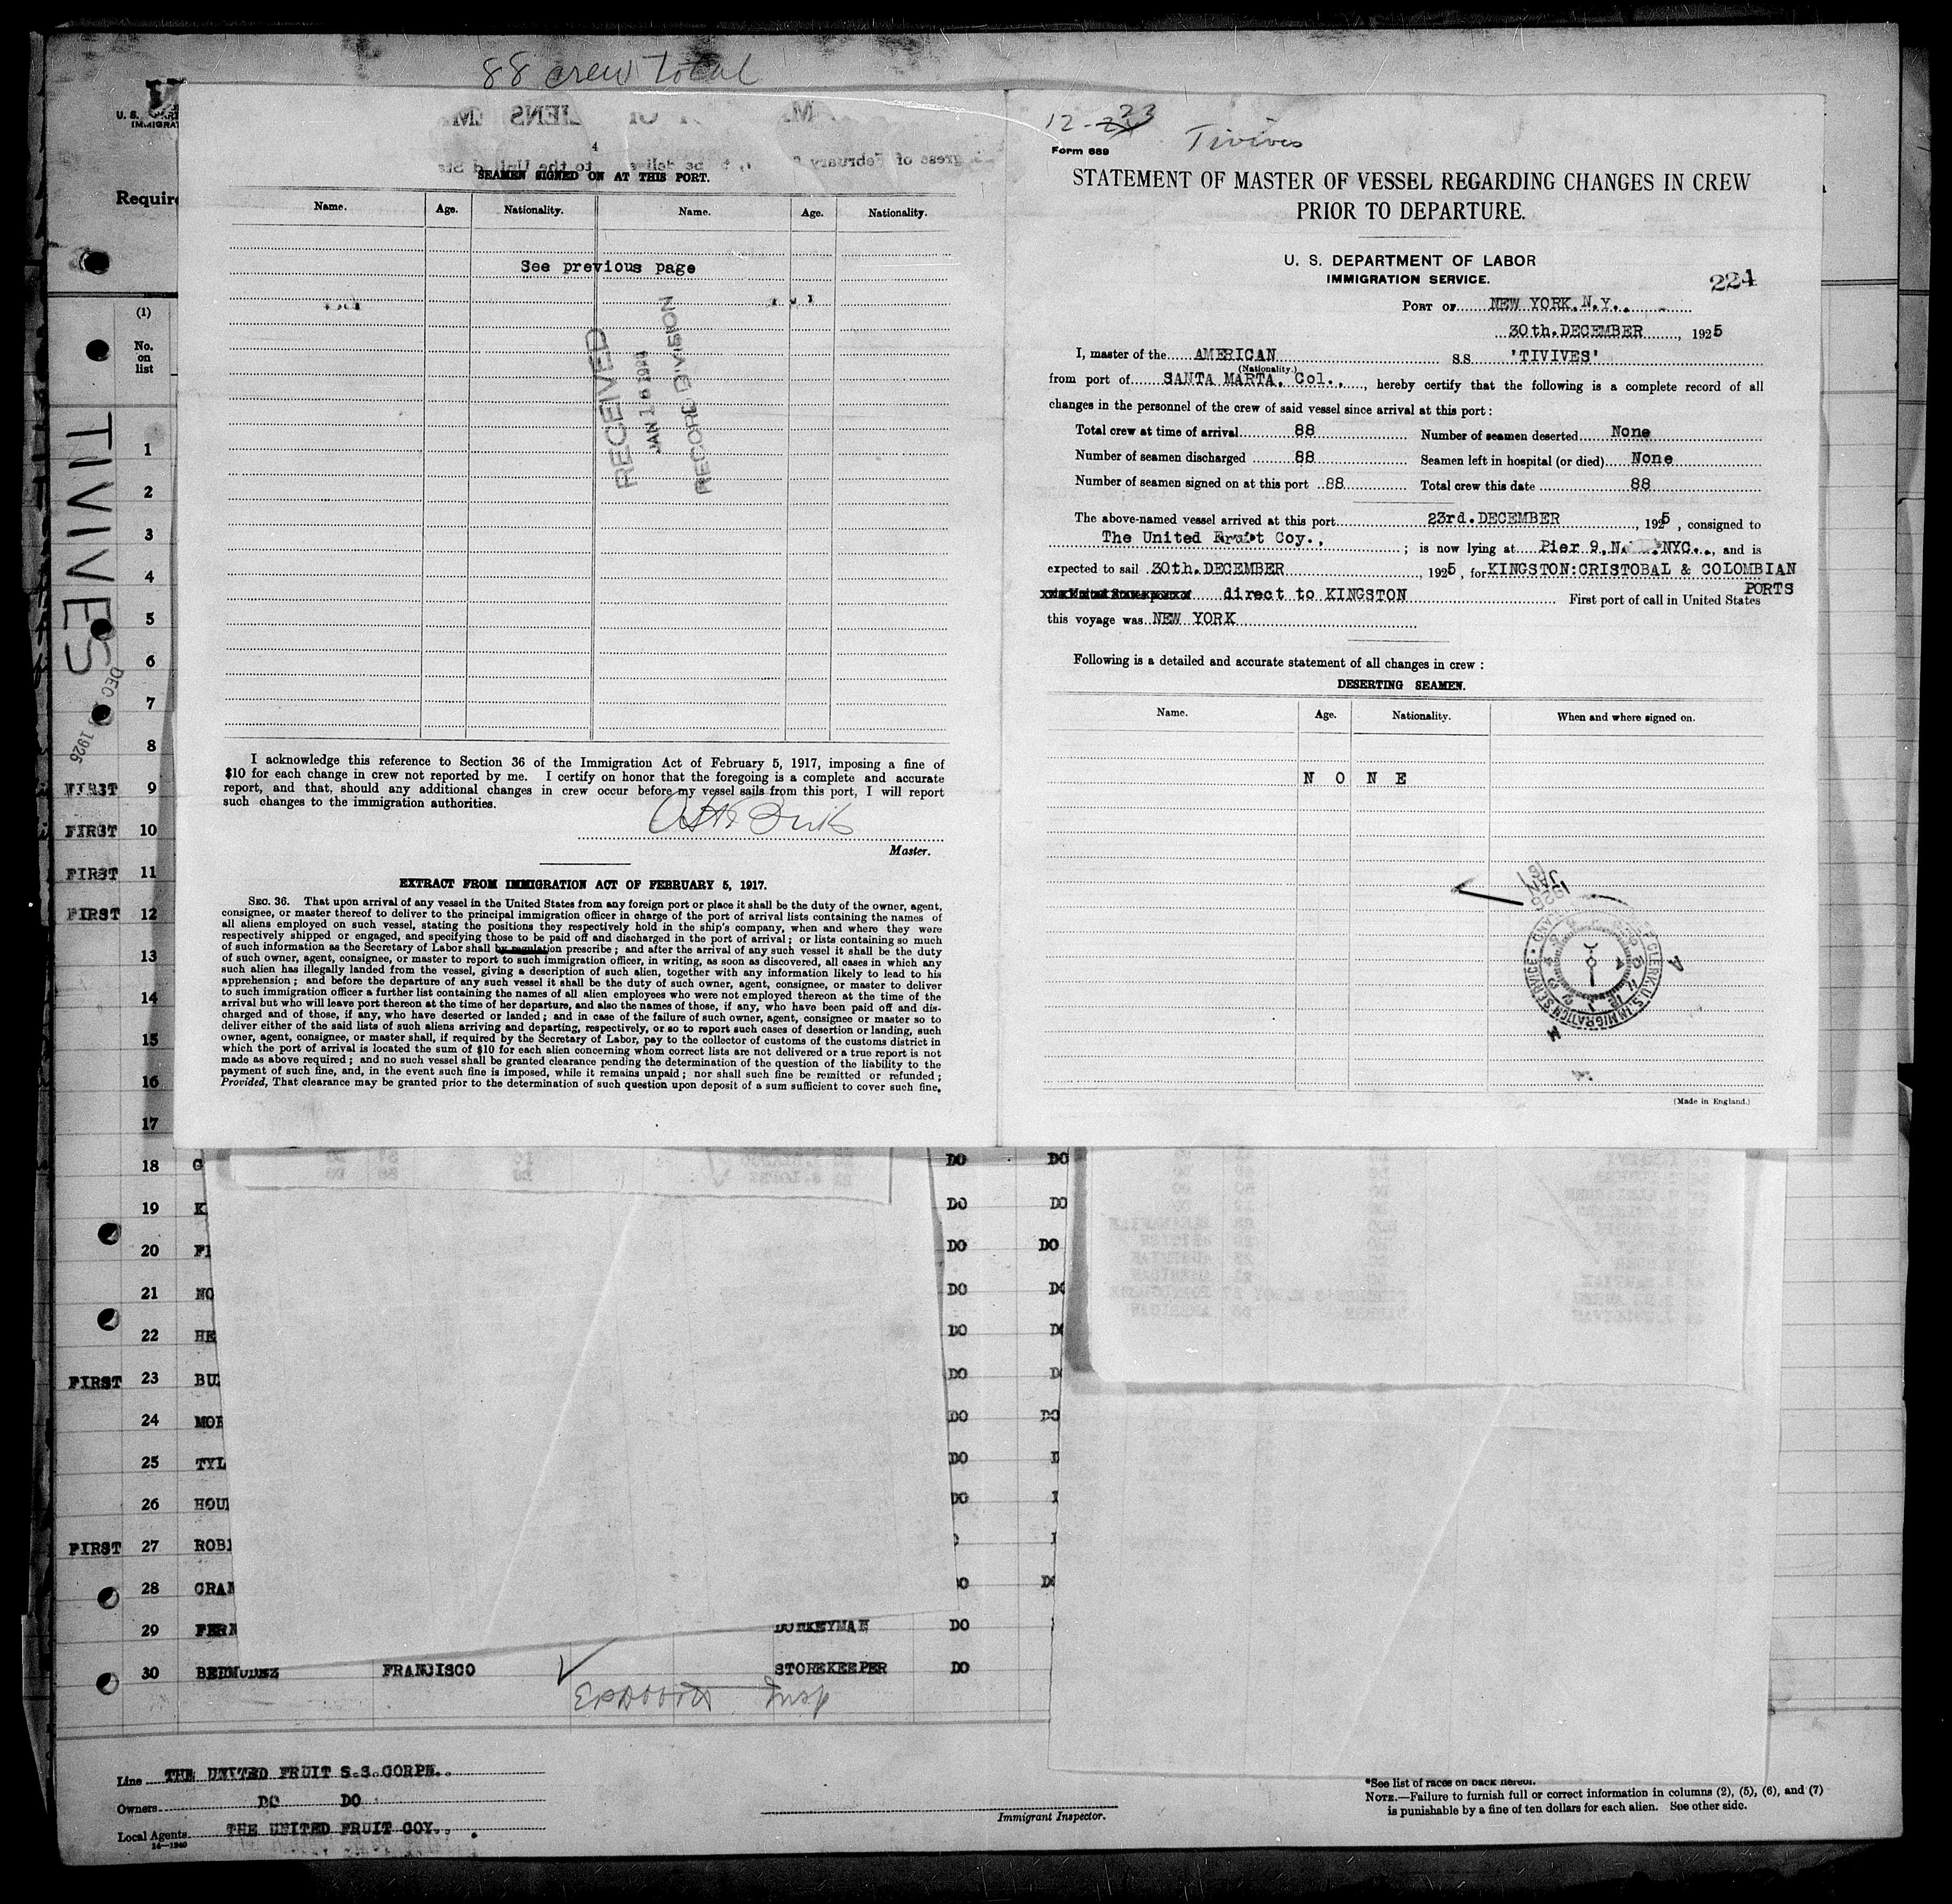 88 crew total
4
SEAMEN SIGNED ON AT THIS PORT.
Name. Age. Nationality. Name. Age. Nationality.
See previous page
RECEIVED
JAN 16 1926
RECORD DIVISION
I acknowledge this reference to Section 36 of the Immigration Act of February 5, 1917, imposing a fine of
$10 for each change in crew not reported by me. I certify on honor that the foregoing is a complete and accurate
report, and that, should any additional changes in crew occur before my vessel sails from this port, I will report
such changes to the immigration authorities.
Master.
EXTRACT FROM IMMIGRATION ACT OF FEBRUARY 5, 1917.
SEC. 36. That upon arrival of any vessel in the United States from any foreign port or place it shall be the duty of the owner, agent,
consignee, or master thereof to deliver to the principal immigration officer in charge of the port of arrival lists containing the names of
all aliens employed on such vessel, stating the positions they respectively hold in the ship's company, when and where they were
respectively shipped or engaged, and specifying those to be paid off and discharged in the port of arrival; or lists containing so much
of such information as the Secretary of Labor shall by regulation prescribe; and after the arrival of any such vessel it shall be the duty
of such owner, agent, consignee, or master to report to such immigration officer, in writing, as soon as discovered, all cases in which any
such alien has illegally landed from the vessel, giving a description of such alien, together with any information likely to lead to his
apprehension; and before the departure of any such vessel it shall be the duty of such owner, agent, consignee, or master to deliver
to such immigration officer a further list containing the names of all alien employees who were not employed thereon at the time of the
arrival but who will leave port thereon at the time of her departure, and also the names of those, if any, who have been paid off and dis-
charged and of those, if any, who have deserted or landed; and in case of the failure of such owner, agent, consignee or master so to
deliver either of the said lists of such aliens arriving and departing, respectively, or so to report such cases of desertion or landing, such
owner, agent, consignee, or master shall, if required by the Secretary of Labor, pay to the collector of customs of the customs district in
which the port of arrival is located the sum of $10 for each alien concerning whom correct lists are not delivered or a true report is not
made as above required; and no such vessel shall be granted clearance pending the determination of the question of the liability to the
payment of such fine, and, in the event such fine is imposed, while it remains unpaid; nor shall such fine be remitted or refunded;
Provided, That clearance may be granted prior to the determination of such question upon deposit of a sum sufficient to cover such fine.
12-23
Tivives
Form 689
STATEMENT OF MASTER OF VESSEL REGARDING CHANGES IN CREW
PRIOR TO DEPARTURE.
U. S. DEPARTMENT OF LABOR
IMMIGRATION SERVICE.
224
PORT OF NEW YORK.N.Y.
30th.DECEMBER, 1925
I, master of the AMERICAN SS 'TIVIVES'
(Nationality.)
from port of SANTA MARTA, Col., , hereby certify that the following is a complete record of all
changes in the personnel of the crew of said vessel since arrival at this port:
Total crew at time of arrival 88 Number of seamen deserted None
Number of seamen discharged 88 Seamen left in hospital (or died) None
Number of seamen signed on at this port 88 Total crew this date 88
The above-named vessel arrived at this port 23rd.DECEMBER, 1925, consigned to
The United Fruit Coy., ; is now lying at Pier 9, N. NYC., and is
expected to sail 30th.DECEMBER, 1925, for KINGSTON:CRISTOBAL & COLOMBIAN
PORTS
direct to KINGSTON First port of call in United States
this voyage was NEW YORK
Following is a detailed and accurate statement of all changes in crew:
DESERTING SEAMEN.
Name. Age. Nationality. When and where signed on.
N O N E
JAN 1926
CLERK U.S. IMMIGRATION SERVICE
(Made in England.)
U. S.
Require
(1)
No.
on
list
TIVIVES
DEC 1925
1
2
3
4
5
6
7
8
FIRST 9
FIRST 10
FIRST 11
FIRST 12
13
14
15
16
17
18 G DO DO
19 K DO DO
20 DO DO
21 NO DO DO
22 HE DO
23 FIRST BU DO
24 DO DO
25 TYL DO
26 HOU DO
FIRST 27 ROB
28 GRA
29 FER DONKEYMAN DO
30 BERMUDEZ FRANCISCO STOREKEEPER DO
Insp
Line THE UNITED FRUIT S.S.CORPN.
Owners DO DO
Local Agents THE UNITED FRUIT COY.
Immigrant Inspector.
*See list of races on back hereof.
NOTE.—Failure to furnish full or correct information in columns (2), (5), (6), and (7)
is punishable by a fine of ten dollars for each alien. See other side.